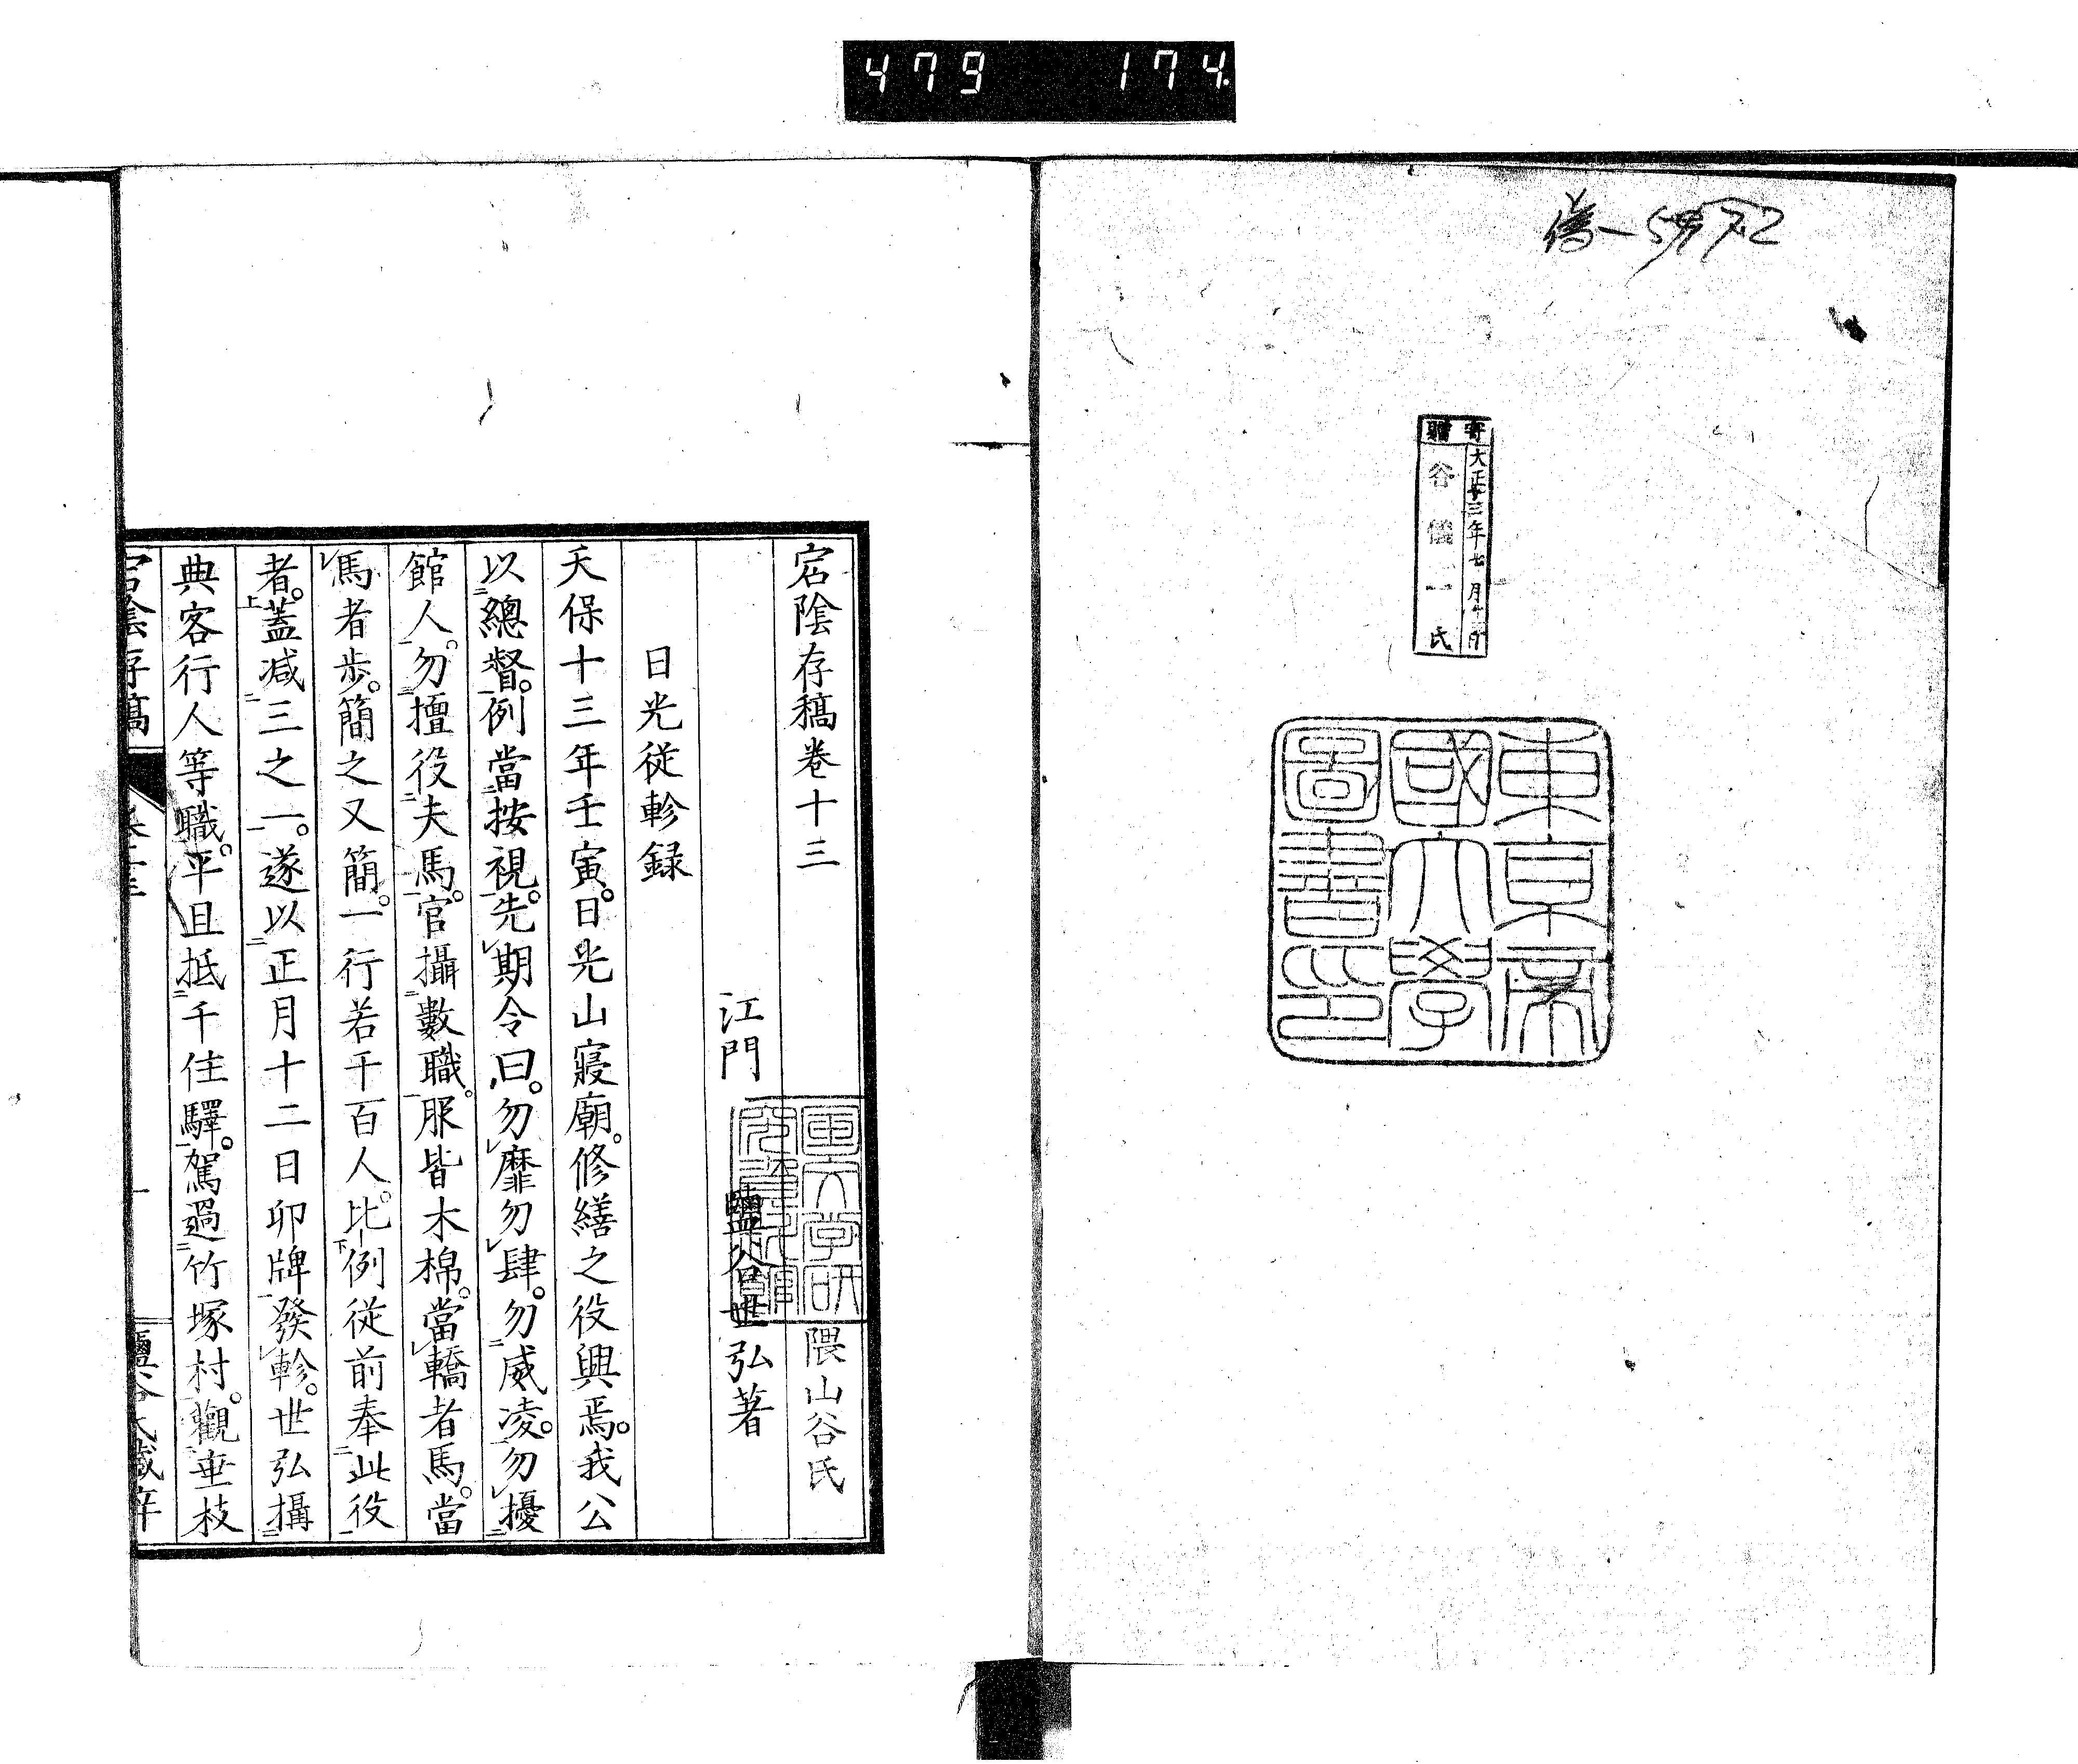 479 174
寄贈
大正十三年七月
谷儀一氏
東京帝
國大學
圖書印
宕陰存稿卷十三
隈山谷氏
江門 鹽谷世弘著
日光從軫録
天保十三年壬寅。日光山寢廟。修繕之役興焉。我公
以總督。例當按視。先期令曰。勿靡勿肆。勿威凌。勿擾
館人。勿擅役夫馬。官攝數職。服皆木棉。當轎者馬。當
馬者歩。簡之又簡。一行若干百人。比例從前奉此役
者。蓋減三之一。遂以正月十二日卯牌發軫。世弘攝
典客行人等職。平旦抵千住驛。駕過竹塚村。觀垂枝
宕陰存稿
鹽谷氏藏梓